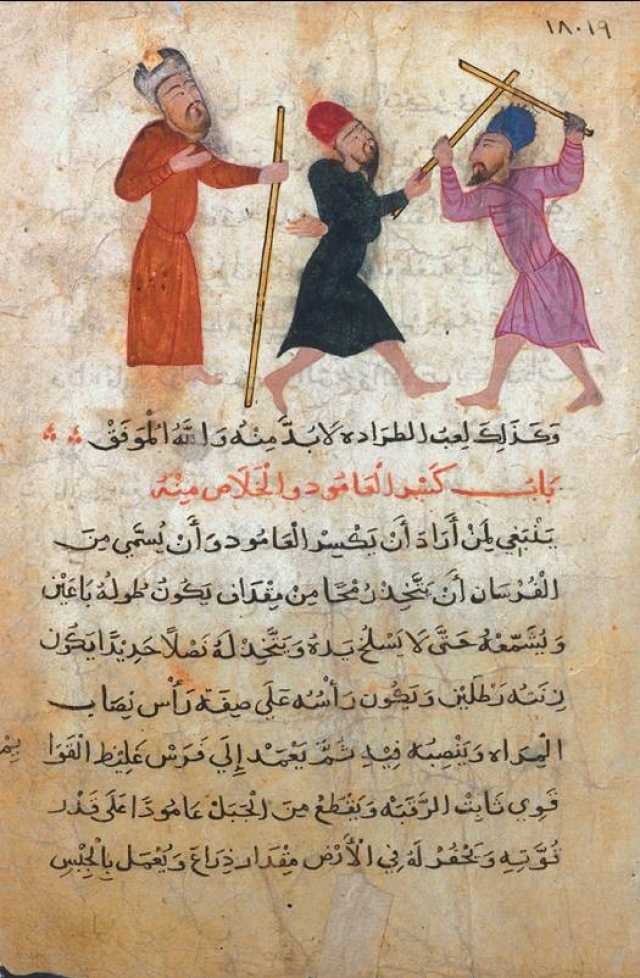 ١٨٠١٩
وَكَذَلِكَ لِعبُ الطرَاده لَا بُدَّ مِنْهُ وَاللَّهُ الْمُوَفَّقْ
بَابُ كَسْرِ الْعَامُود وَالْخَلَاصِ مِنْهُ
يَنْبَغِي لِمَنْ أَرَادَ أَنْ يَكْسِر الْعَامُود وَأَنْ يُسَمَّي مِنَ
الْفُرْسَان أَنْ يَتَّخِذ رُمْحًا مِنْ يَكُونُ طُولُهُ بَاعَيْن
وَيُشَمِّعْهُ حَتَّى لَا يَسْلخ يَدهُ وَيَتَّخِذ لَهُ نَصْلًا حَدِيدًا يَكُون
زِنَتُه رَطْلَيْن وَيَكُون رَأْسُهُ عَلَي صِفَة رَأْس نِصَاب
الْمِرَاه وَيَنْصِبُه فِيهِ ثُمَّ يَعْمَد إِلَي فَرَسْ غَلِيْظ الْقَوَا
قَوِي ثَابِت الرَّقَبَه وَيَقْطَعْ مِنَ الْجَبَل عَامُودًا عَلَى قَدْر
قُوَّتِهِ وَيَحْفُرْ لَهُ فِي الْأَرْض مِقْدَار ذِرَاعْ وَيُعْمَل بِالْجِبْسِ